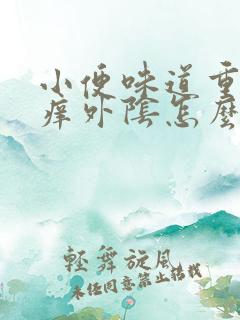 小便味道重
痒外陰怎麽
輕舞旋風
未经同意禁止转载